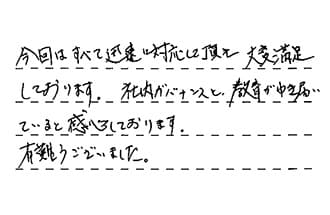 今回はすべて迅速に対応して頂き 大変満足
しております。 社内ガバナンスと、教育が行き届い
ていると感心しております。
有難うございました。